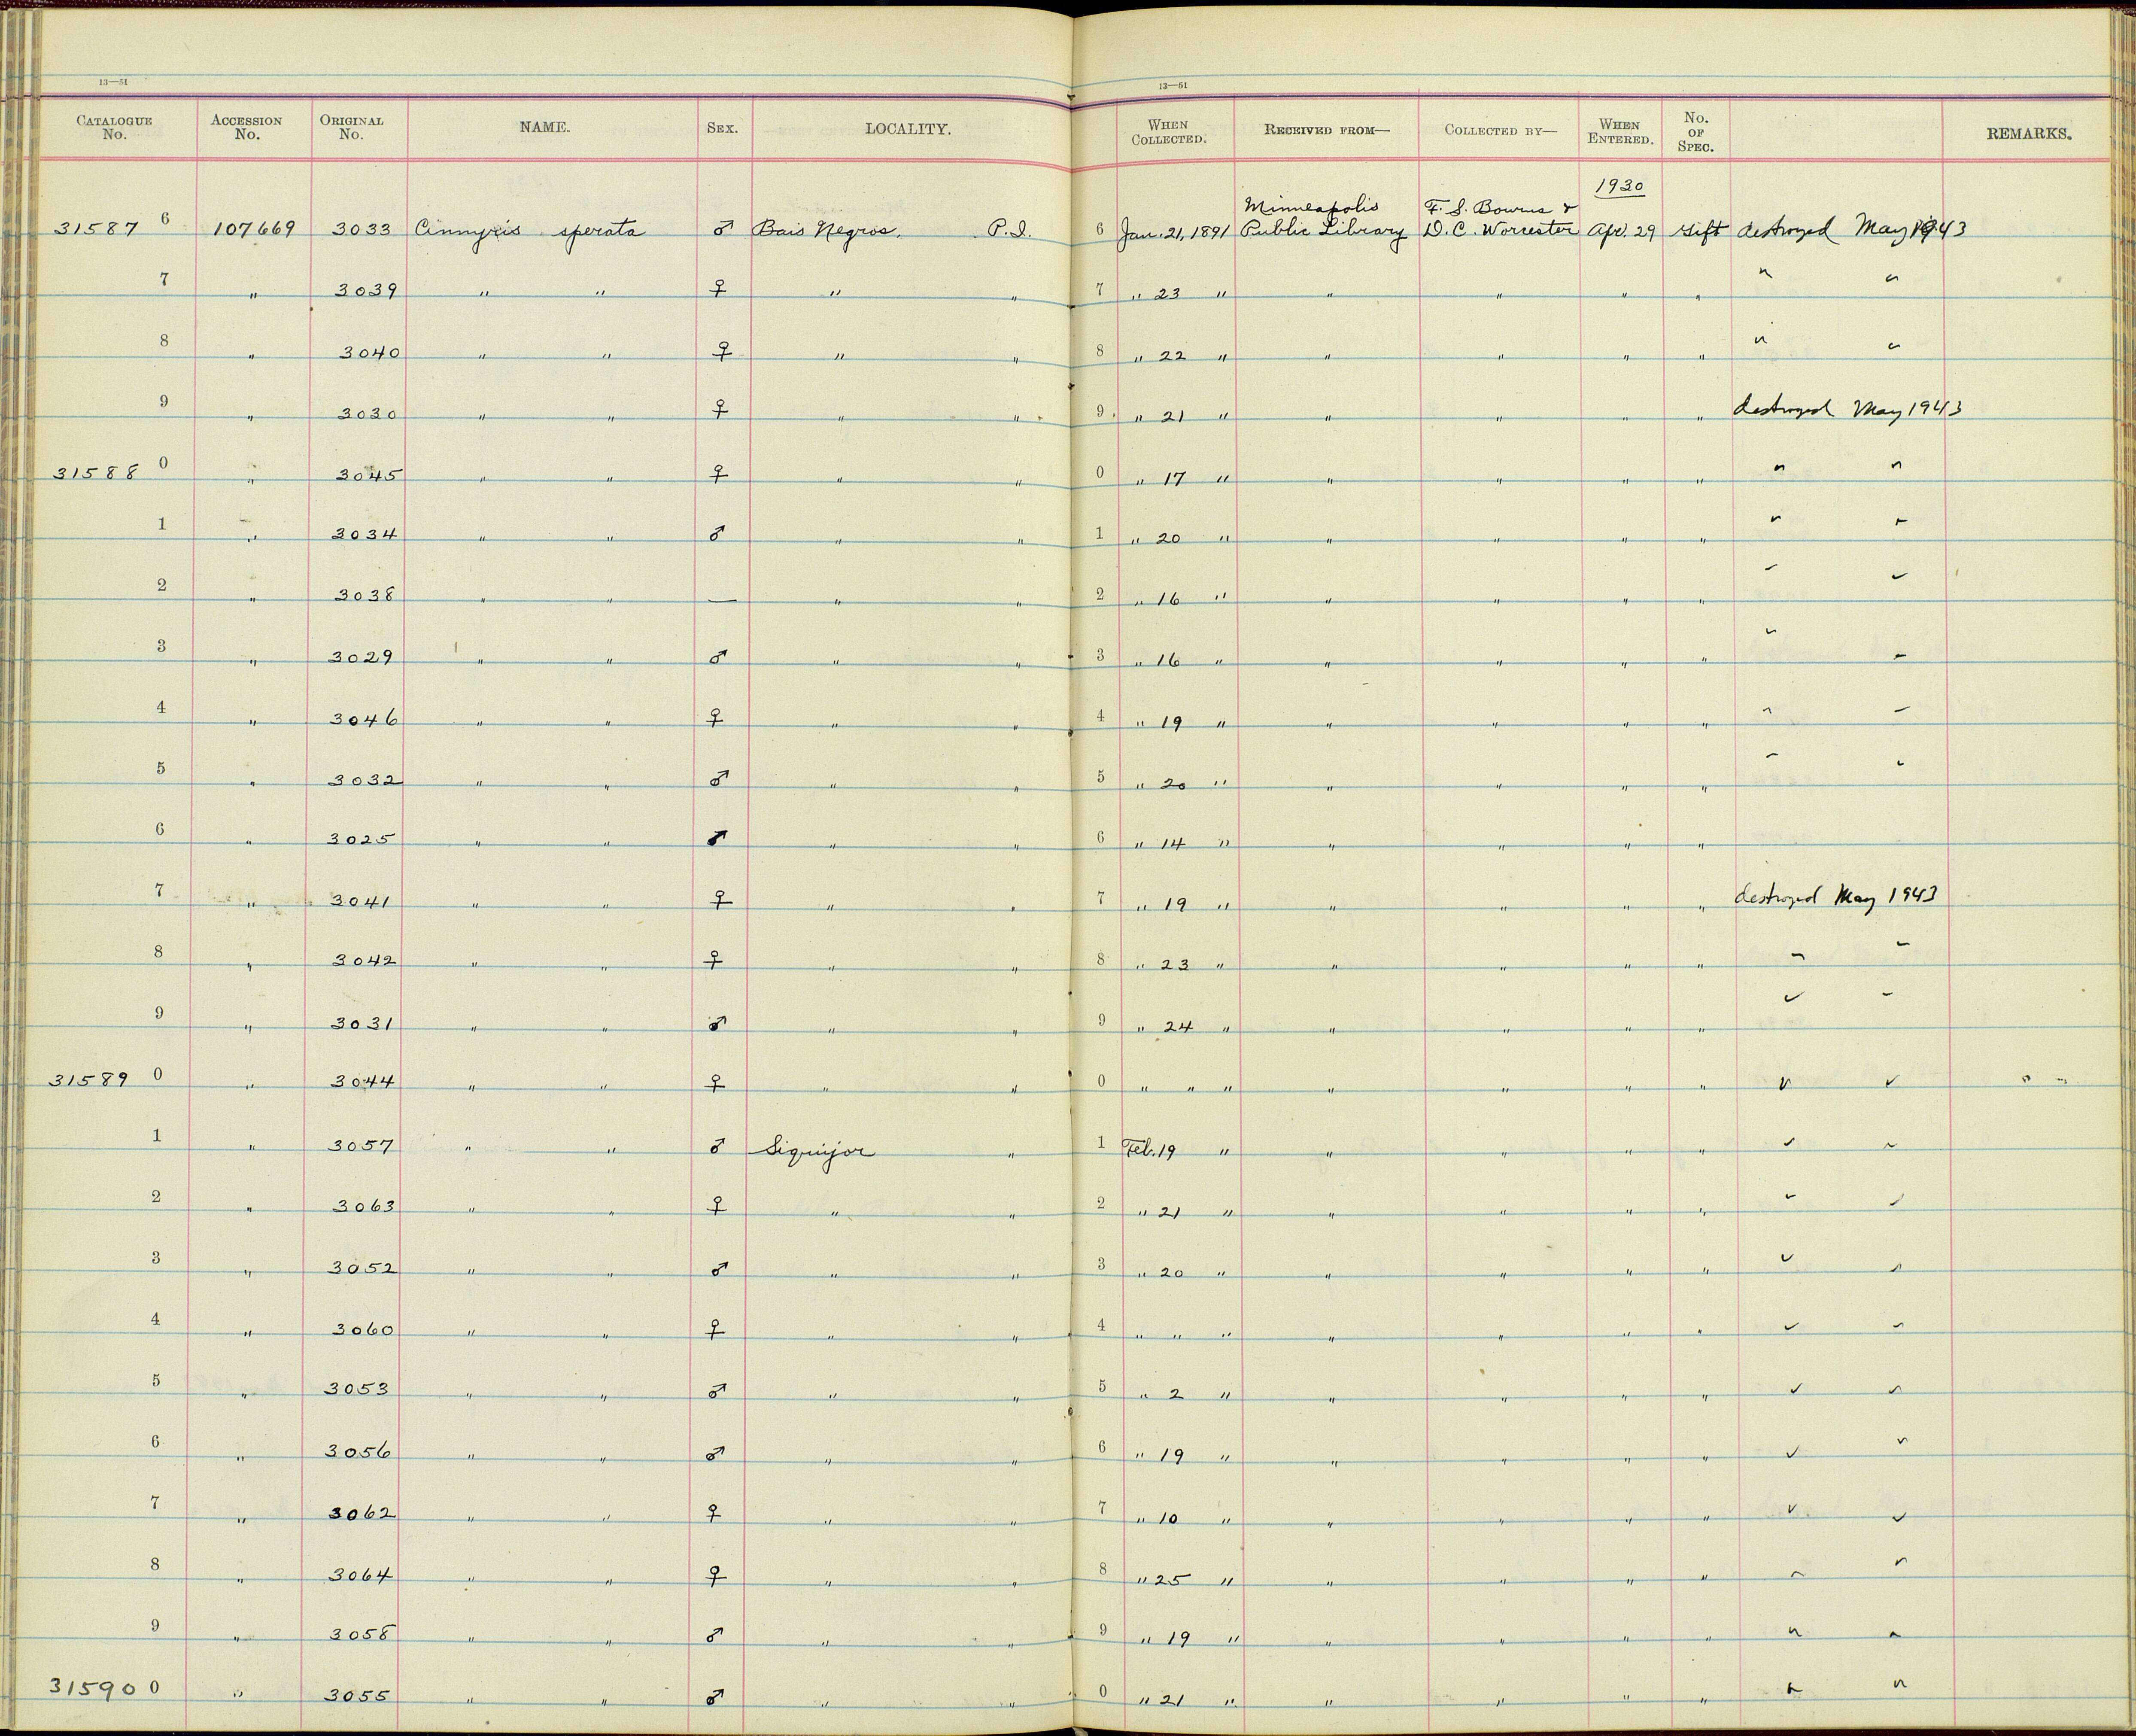 13—51 13—51
CATALOGUE No. ACCESSION No. ORIGINAL No. NAME. SEX. LOCALITY. WHEN COLLECTED. RECEIVED FROM— COLLECTED BY— WHEN ENTERED. No. OF SPEC. REMARKS.
1930
Minneapolis F. S. Bourns &
31587 6 107669 3033 Cinnyris sperata ♂ Bais Negros, P.I. 6 Jan. 21, 1891 Public Library D. C. Worcester Apr. 29 Gift destroyed May 1943
7 " 3039 " " ♀ " " 7 " 23 " " " " " " "
8 " 3040 " " ♀ " " 8 " 22 " " " " " " "
9 " 3030 " " ♀ " " 9 " 21 " " " " " destroyed May 1943
31588 0 " 3045 " " ♀ " " 0 " 17 " " " " " " "
1 " 3034 " " ♂ " " 1 " 20 " " " " " " "
2 " 3038 " " — " " 2 " 16 " " " " " " "
3 " 3029 " " ♂ " " 3 " 16 " " " " " " "
4 " 3046 " " ♀ " " 4 " 19 " " " " " " "
5 " 3032 " " ♂ " " 5 " 20 " " " " " " "
6 " 3025 " " ♂ " " 6 " 14 " " " " "
7 " 3041 " " ♀ " " 7 " 19 " " " " " destroyed May 1943
8 " 3042 " " ♀ " " 8 " 23 " " " " " " "
9 " 3031 " " ♂ " " 9 " 24 " " " " " " "
31589 0 " 3044 " " ♀ " " 0 " " " " " " " " " " "
1 " 3057 " " ♂ Siquijor " 1 Feb. 19 " " " " " " "
2 " 3063 " " ♀ " " 2 " 21 " " " " " " "
3 " 3052 " " ♂ " " 3 " 20 " " " " " " "
4 " 3060 " " ♀ " " 4 " " " " " " " " "
5 " 3053 " " ♂ " " 5 " 2 " " " " " " "
6 " 3056 " " ♂ " " 6 " 19 " " " " " " "
7 " 3062 " " ♀ " " 7 " 10 " " " " " " "
8 " 3064 " " ♀ " " 8 " 25 " " " " " " "
9 " 3058 " " ♂ " " 9 " 19 " " " " " " "
31590 0 " 3055 " " ♂ " " 0 " 21 " " " " " " "